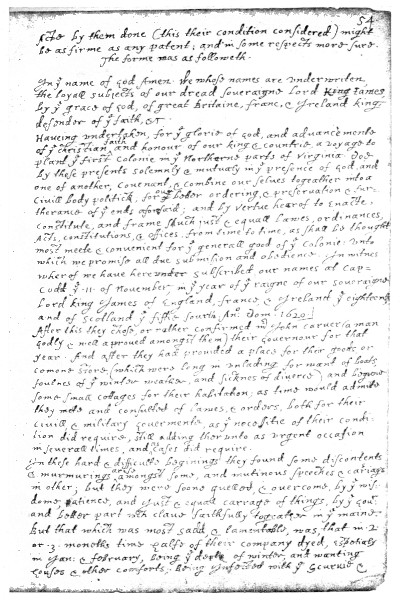 54
Acts by them done (this their condition considered) might
be as firme as any patent; and in some respects more sure.
The forme was as followeth.
In yͤ name of god Amen. We whose names are underwriten,
the loyall subjects of our dread soveraigne Lord King James
by yͤ grace of god, of great Britaine, franc, & Ireland king,
defender of yͤ faith, &c
Haveing undertaken, for yͤ glorie of god, and advancemente
of yͤ christian faith and honour of our king & countrie, a voyage to
plant yͤ first colonie in yͤ Northerne parts of Virginia. Doe
by these presents solemnly & mutualy in yͤ presence of god, and
one of another, covenant, & combine our selves togeather into a
Civill body politick, for our better ordering, & preservation & fur-
therance of yͤ ends aforesaid; and by vertue hearof to enacte,
constitute, and frame such just & equall lawes, ordinances,
Acts, constitutions, & offices, from time to time, as shall be thought
most meete & convenient for yͤ generall good of yͤ colonie: unto
which we promise all due submission and obedience. In witnes
wherof we have hereunder subscribed our names at Cap-
Codd yͤ .11. of November, in yͤ year of yͤ raigne of our soveraigne
Lord king James of England, france, & Ireland yͤ eighteenth
and of Scotland yͤ fiftie fourth. An°: Dom. 1620.
After this they chose, or rather confirmed mr John carver (a man
godly & well aproved amongst them) their governour for that
year. And after they had provided a place for their goods, or
comone store, (which were long in unlading for want of boats,
foulnes of yͤ winter weather, and sicknes of diverce) and begune
some small cottages for their habitation; as time would admitte
they mette and consulted of lawes, & orders, both for their
civill, & military govermente, as yͤ necessitie of their condi-
tion did require, still adding therunto as urgent occasion
in severall times, and as cases did require.
In these hard & difficulte beginings they found some discontents
& murmurings arise amongst some, and mutinous speeches & carriags
in other; but they were soone quelled, & overcome, by yͤ wis-
dome, patience, and just & equall carrage of things, by yͤ govr
and better part wch clave faithfully togeather in yͤ maine.
But that which was most sadd, & lamentable, was, that in .2.
or .3. moneths time halfe of their company dyed, espetialy
in Jan: & february, being yͤ depth of winter, and wanting
houses & other comforts; being infected with yͤ scurvie &